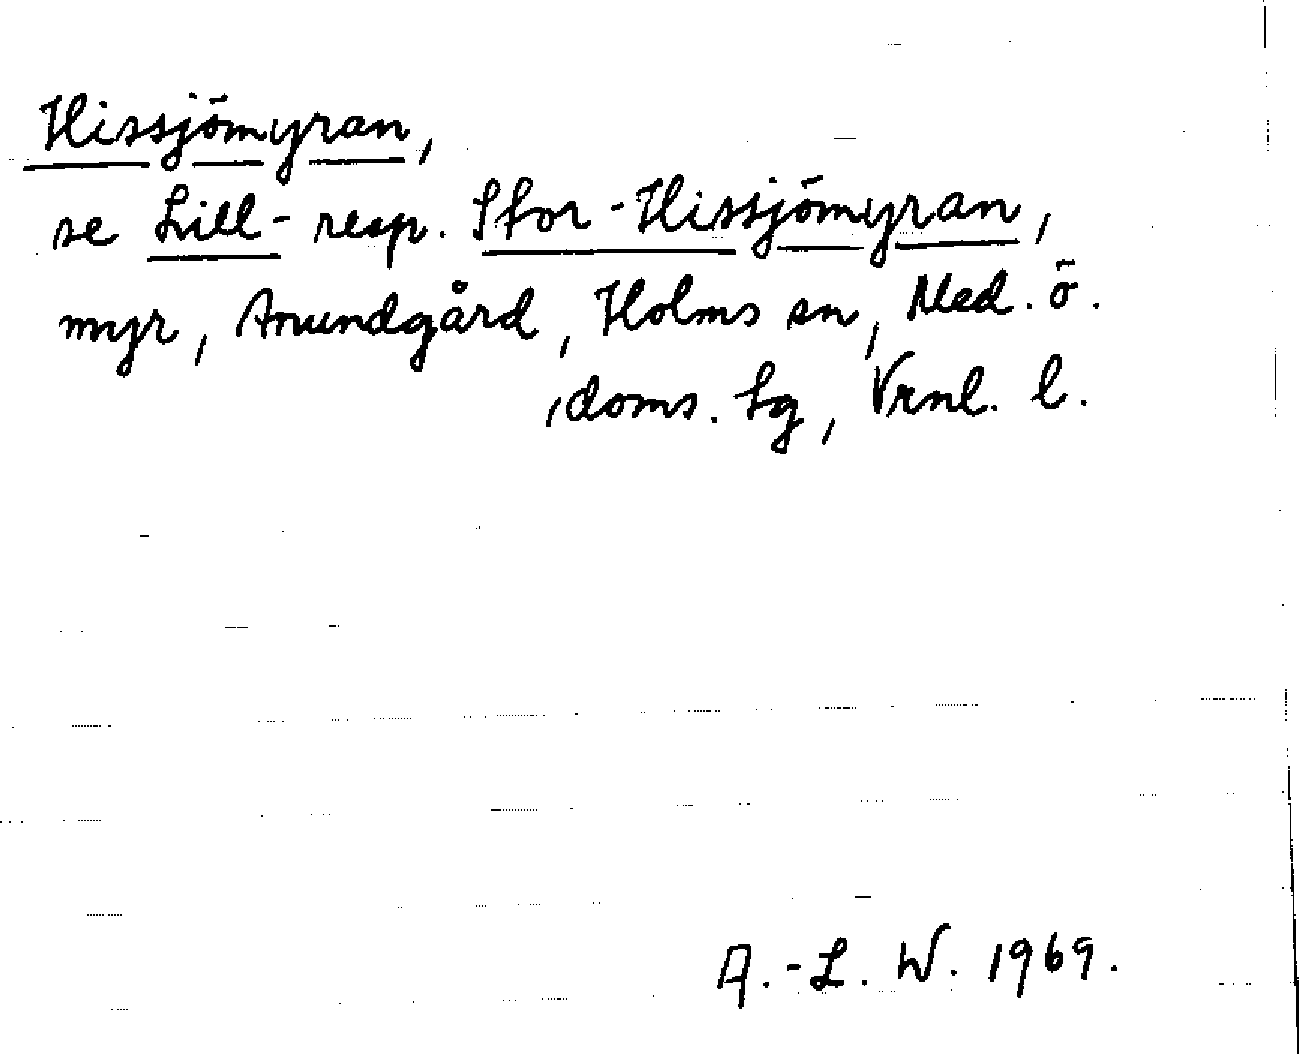 Hissjömyran,
se Lill- resp. Stor-Hissjömyran,
myr, Anundgård, Holms sn, Med. ö.
doms. sg, Vrnl. l.
A.-L. W. 1969.